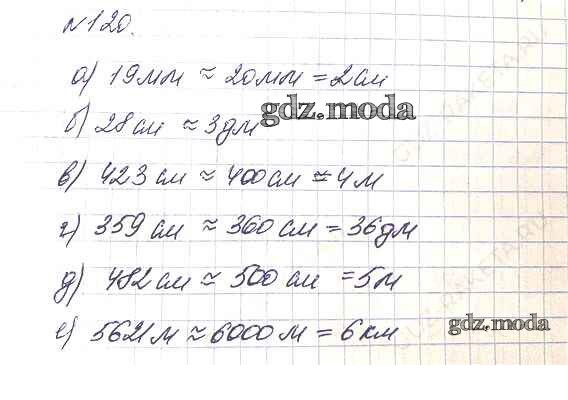 №120.
а) 19мм ≈ 20мм = 2см
б) 28см ≈ 3дм
gdz.moda
в) 423см ≈ 400см = 4м
г) 359см ≈ 360см = 36дм
д) 482см ≈ 500см = 5м
е) 5621м ≈ 6000м = 6км
gdz.moda